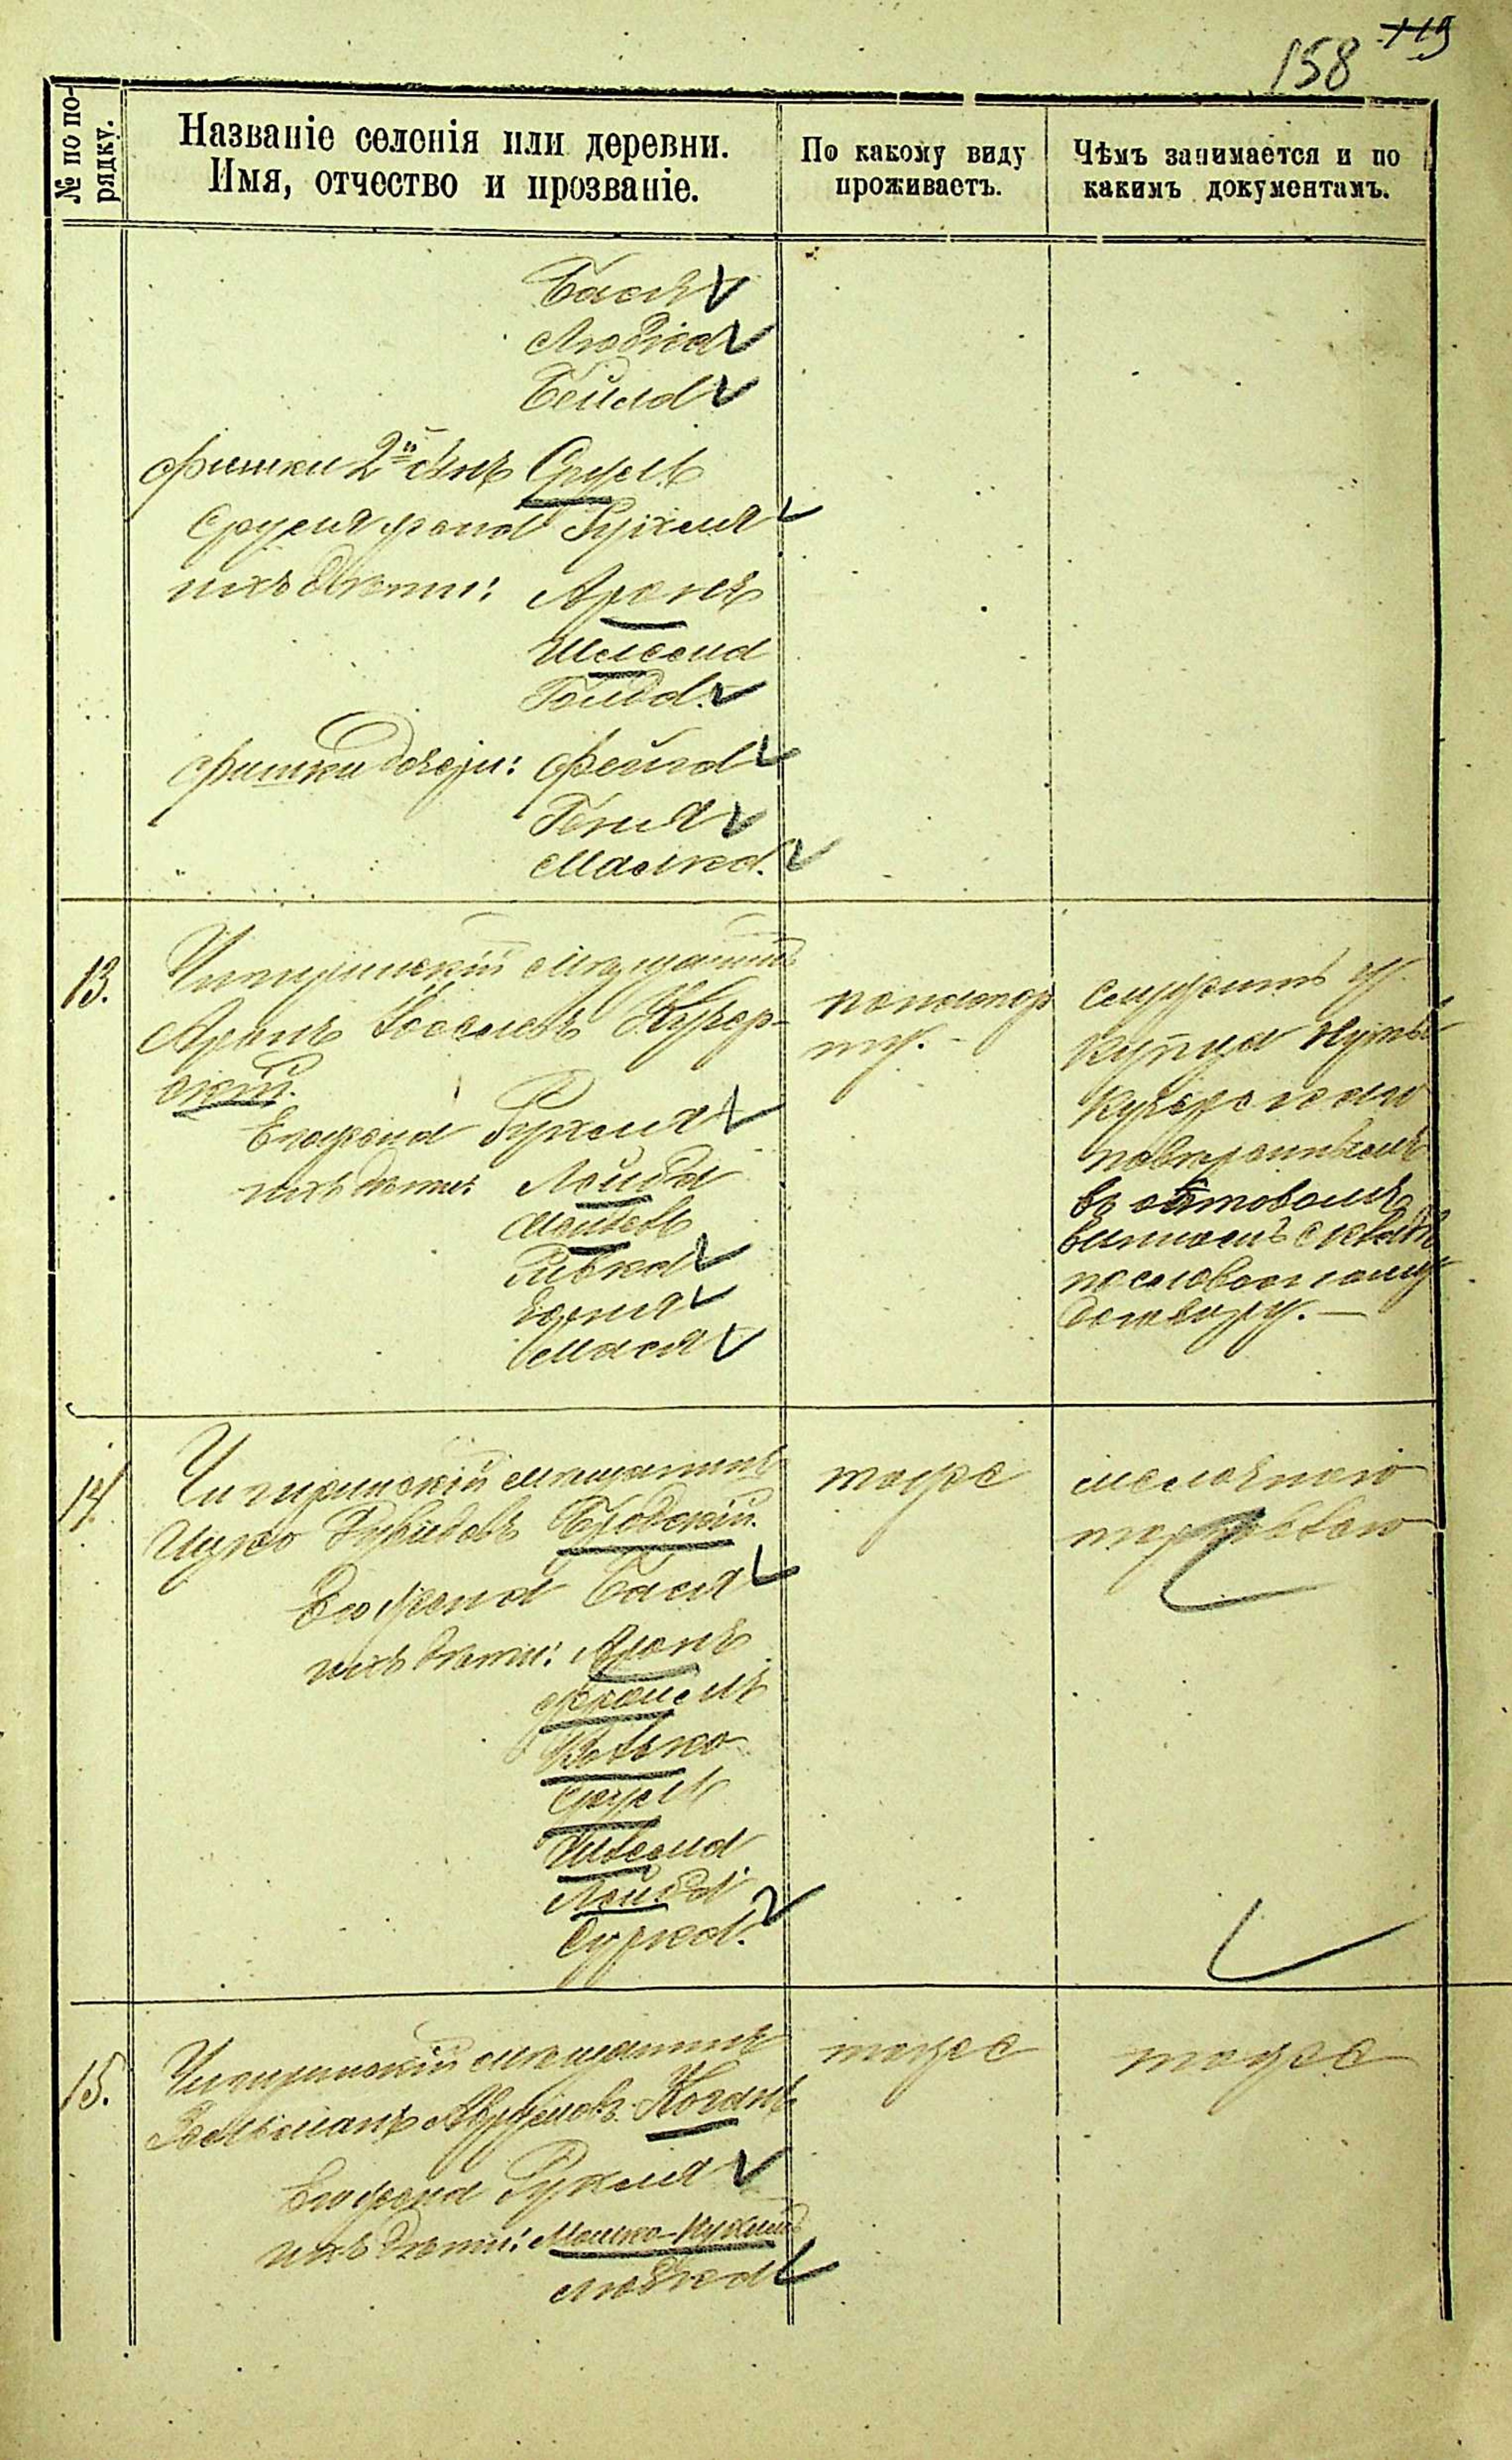 158 119
№ по порядку.
Названіе селенія или деревни.
Имя, отчество и прозваніе.
По какому виду
проживаетъ.
Чѣмъ занимается и по
какимъ документамъ.
Бася
Любка
Бейла
Фишки 2й сынъ Сруль
Сруля жена Рухля
ихъ дѣти: Аронъ
Шлема
Голда.
Фишки дочери: Фейга
Геня
Малка.
13.
Чигиринскій мѣщанинъ
Аронъ Іоселевъ Кучер-
скій.
Его жена Рухля
ихъ дѣти: Лейба
Мендель
Ривка
Геня
Мася
по паспор-
ту.
Служитъ у
купца
Кучерскаго
повѣреннымъ
въ оптовомъ
винномъ складѣ
по словесному
договору.
14.
Чигиринскій мѣщанинъ
Ицко Дувидовъ Бродскій.
Его жена Бася
ихъ дѣти: Аронъ
Фроимъ
Волько
Сруль
Шлема
Лейба
Сурка.
тоже
мелочною
торговлею
15.
Чигиринскій мѣщанинъ
Зельманъ Аврумовъ Коганъ
Его жена Рухля
ихъ дѣти: Мошко-Нухимъ
Любка
тоже
тоже